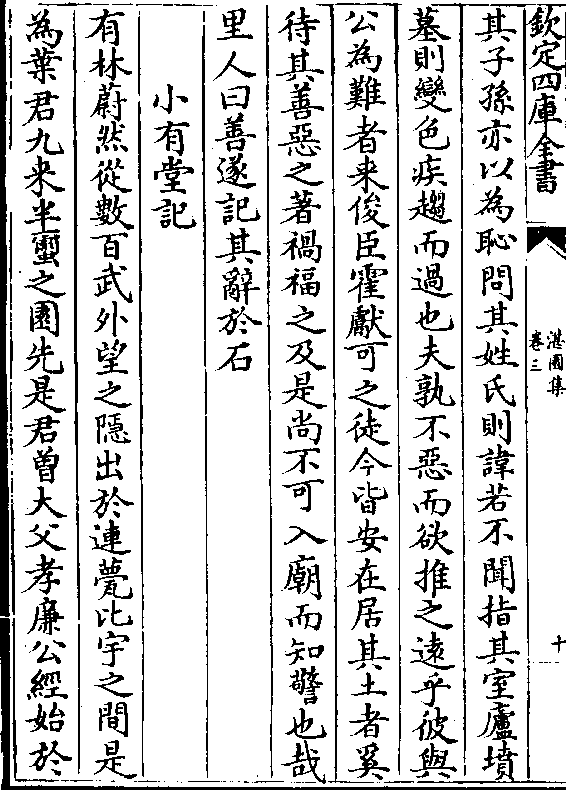 欽定四庫全書
湛園集
卷三
十
其子孫亦以為恥問其姓氏則諱若不聞指其室廬墳
墓則變色疾趨而過也夫孰不惡而欲推之遠乎彼與
公為難者来俊臣霍獻可之徒今皆安在居其土者奚
待其善惡之著禍福之及是尚不可入廟而知警也哉
里人曰善遂記其辭於石
小有堂記
有林蔚然從數百武外望之隱出於連甍比宇之間是
為葉君九来半壐之園先是君曽大父孝廉公經始於